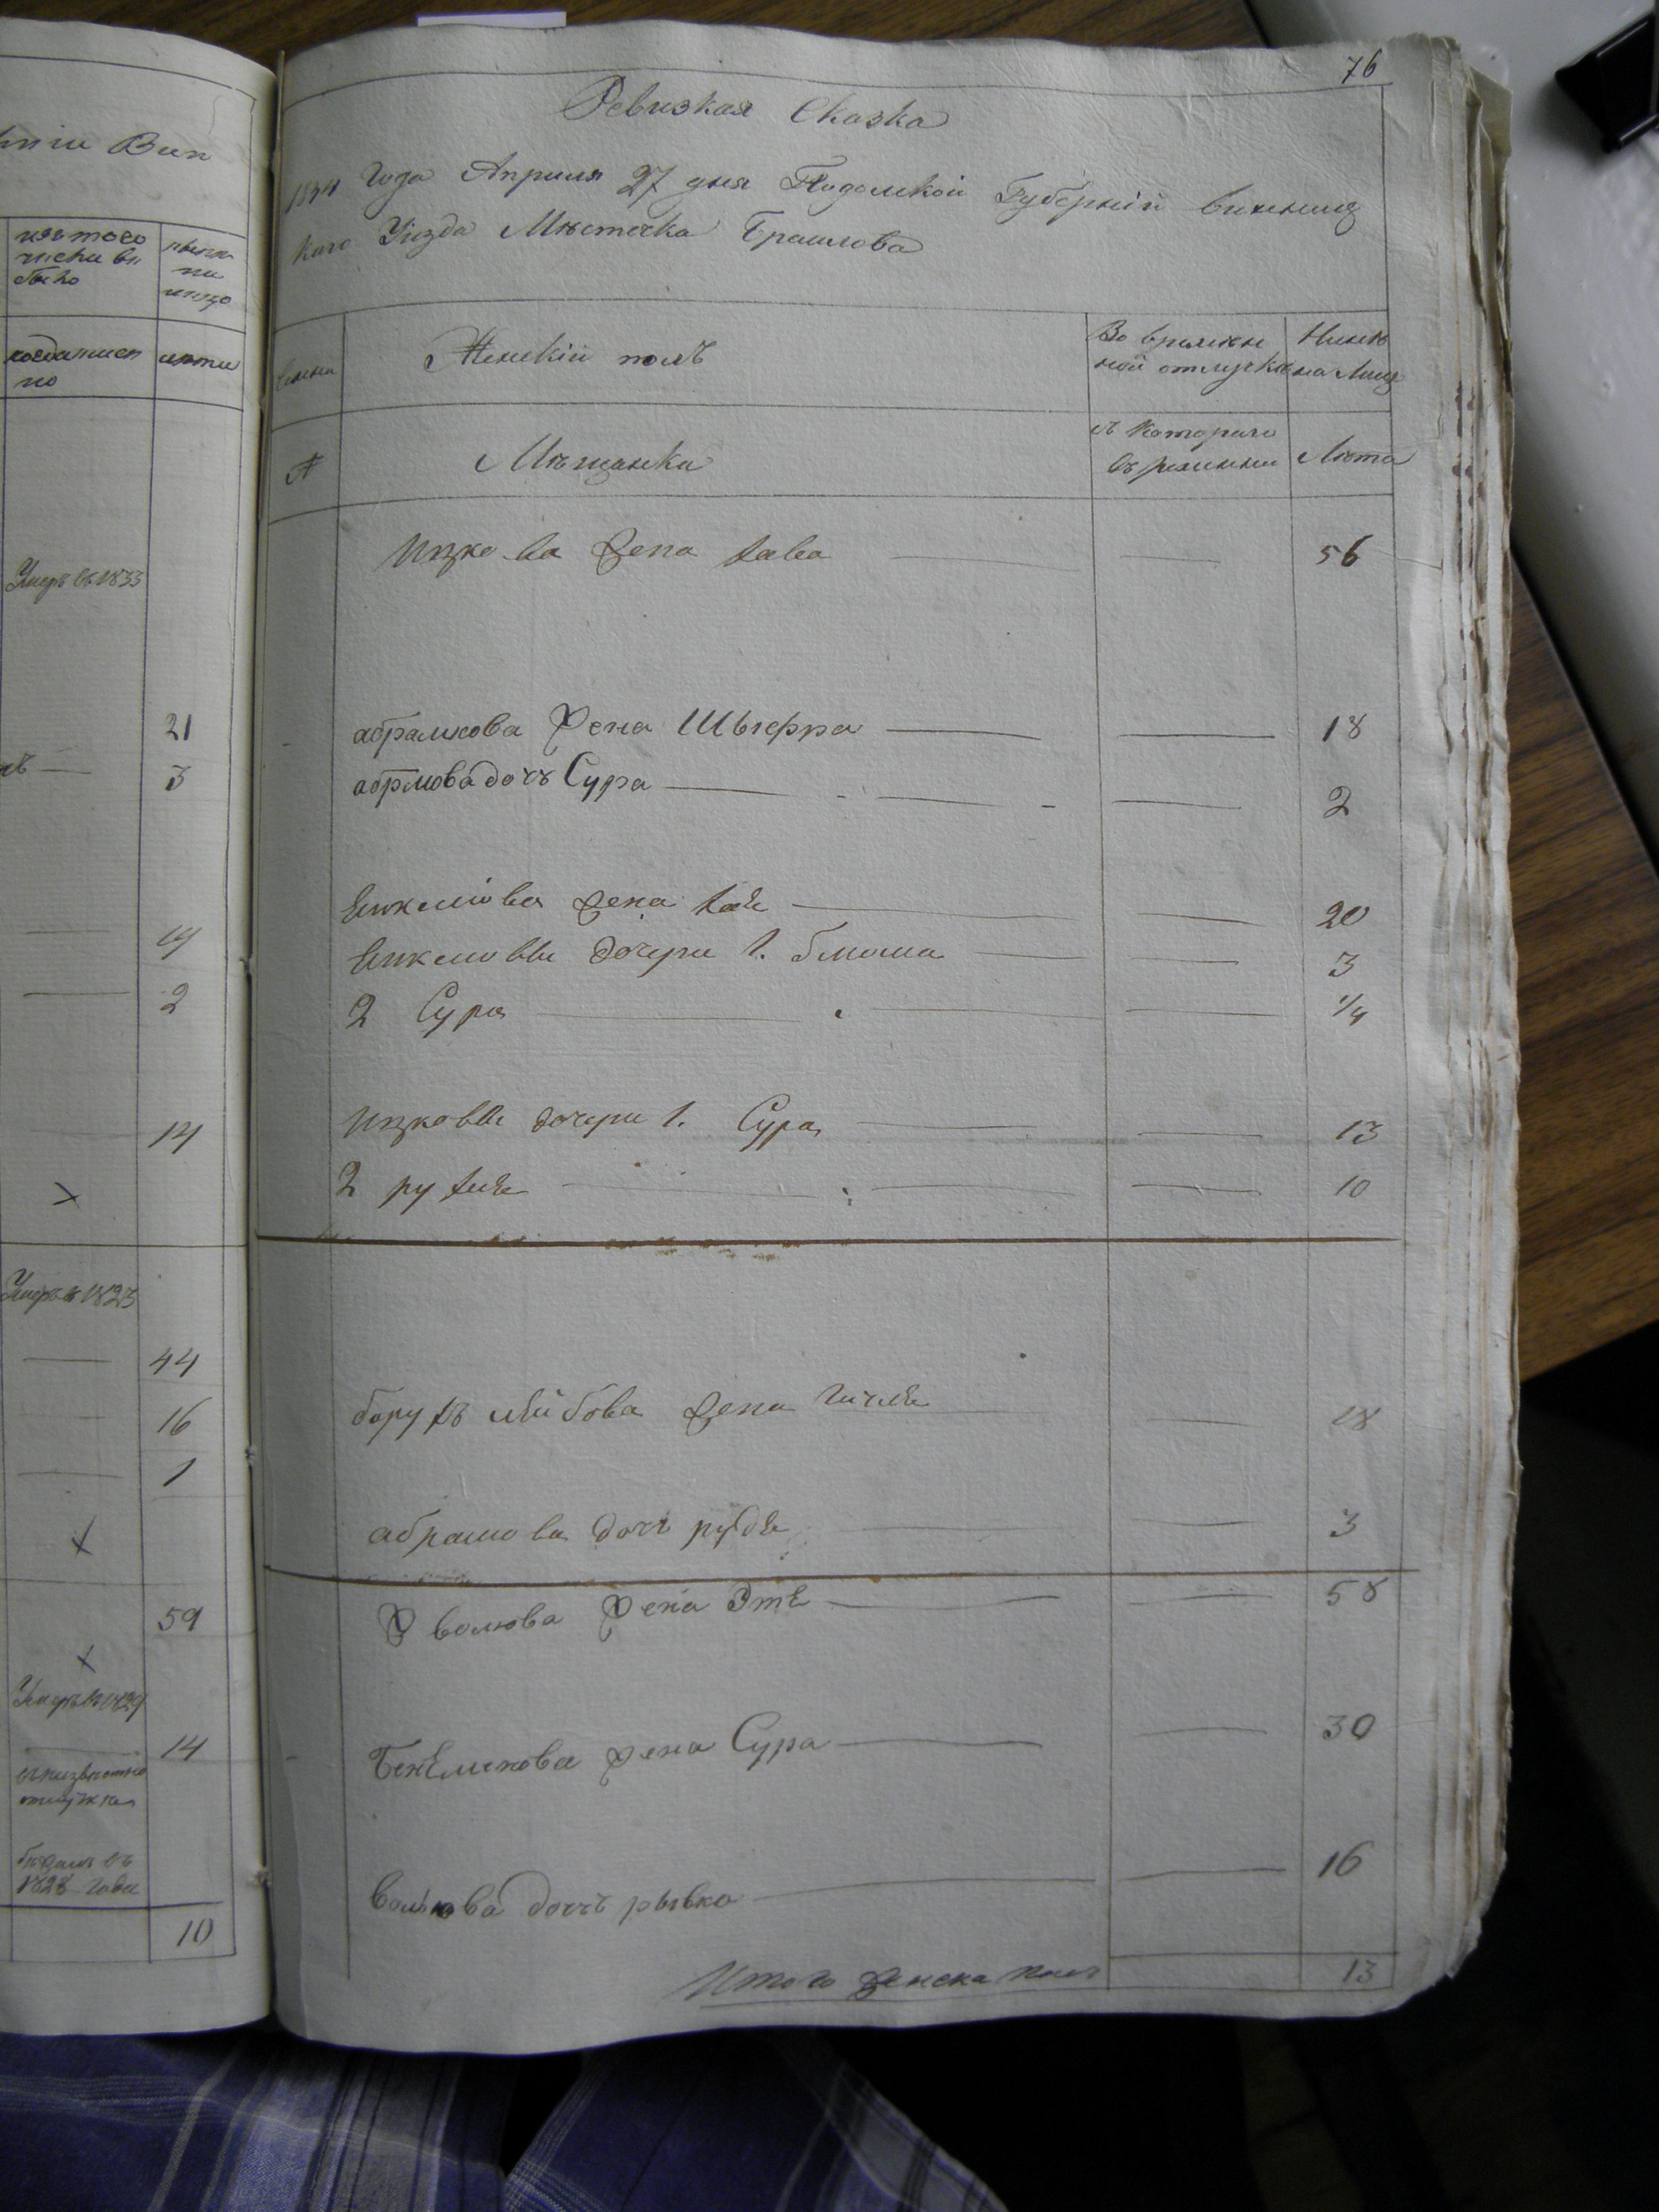 Вин
изъ того
числа вы
было
когда имен
но
лѣта
Умеръ въ 1833
21
3
19
2
14
Умеръ въ 1823
44
16
1
59
Умеръ въ 1829
14
отлучке
1828 года
10
76
Ревизкая Сказка
1834 Года Априля 27 дня Подолской Губерніи Винниц
каго Уизда Мѣстечка Браилова
Женскій полъ
Во времен
ной отлучке
Нинѣ
на лице
№
Мѣщанки
съ Котораго
времини
Лѣта
Ицкова жена хава 56
абрамкова жена Шыефра 18
абрмова дочъ Сура 2
жена хае 20
дочери 1. блюма 3
2 Сура 1/4
Ицковы дочери 1. Сура 13
2 рухле 10
борухъ лейбова жена 18
абрамова дочь рудя 3
волкова жена Эте 58
жена Сура 30
волкова дочъ рывка 16
Итого женска полa 13